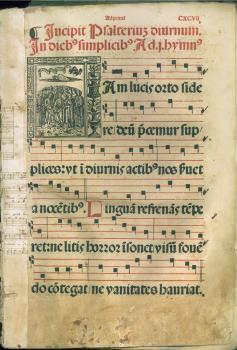 Ad primā CXCVII
Incipit Psalteriuȝ diurnum.
In dieb⁹ simplicib⁹ A d.j. hymn⁹
Am lucis orto side
re deū p̄cemur sup
plices: vt ī diurnis actib⁹ nos ſuet
a nocētib⁹. Linguā refrenās tēpe
ret: ne litis horror īsonet: visū fouē
do cōtegat: ne vanitates hauriat.